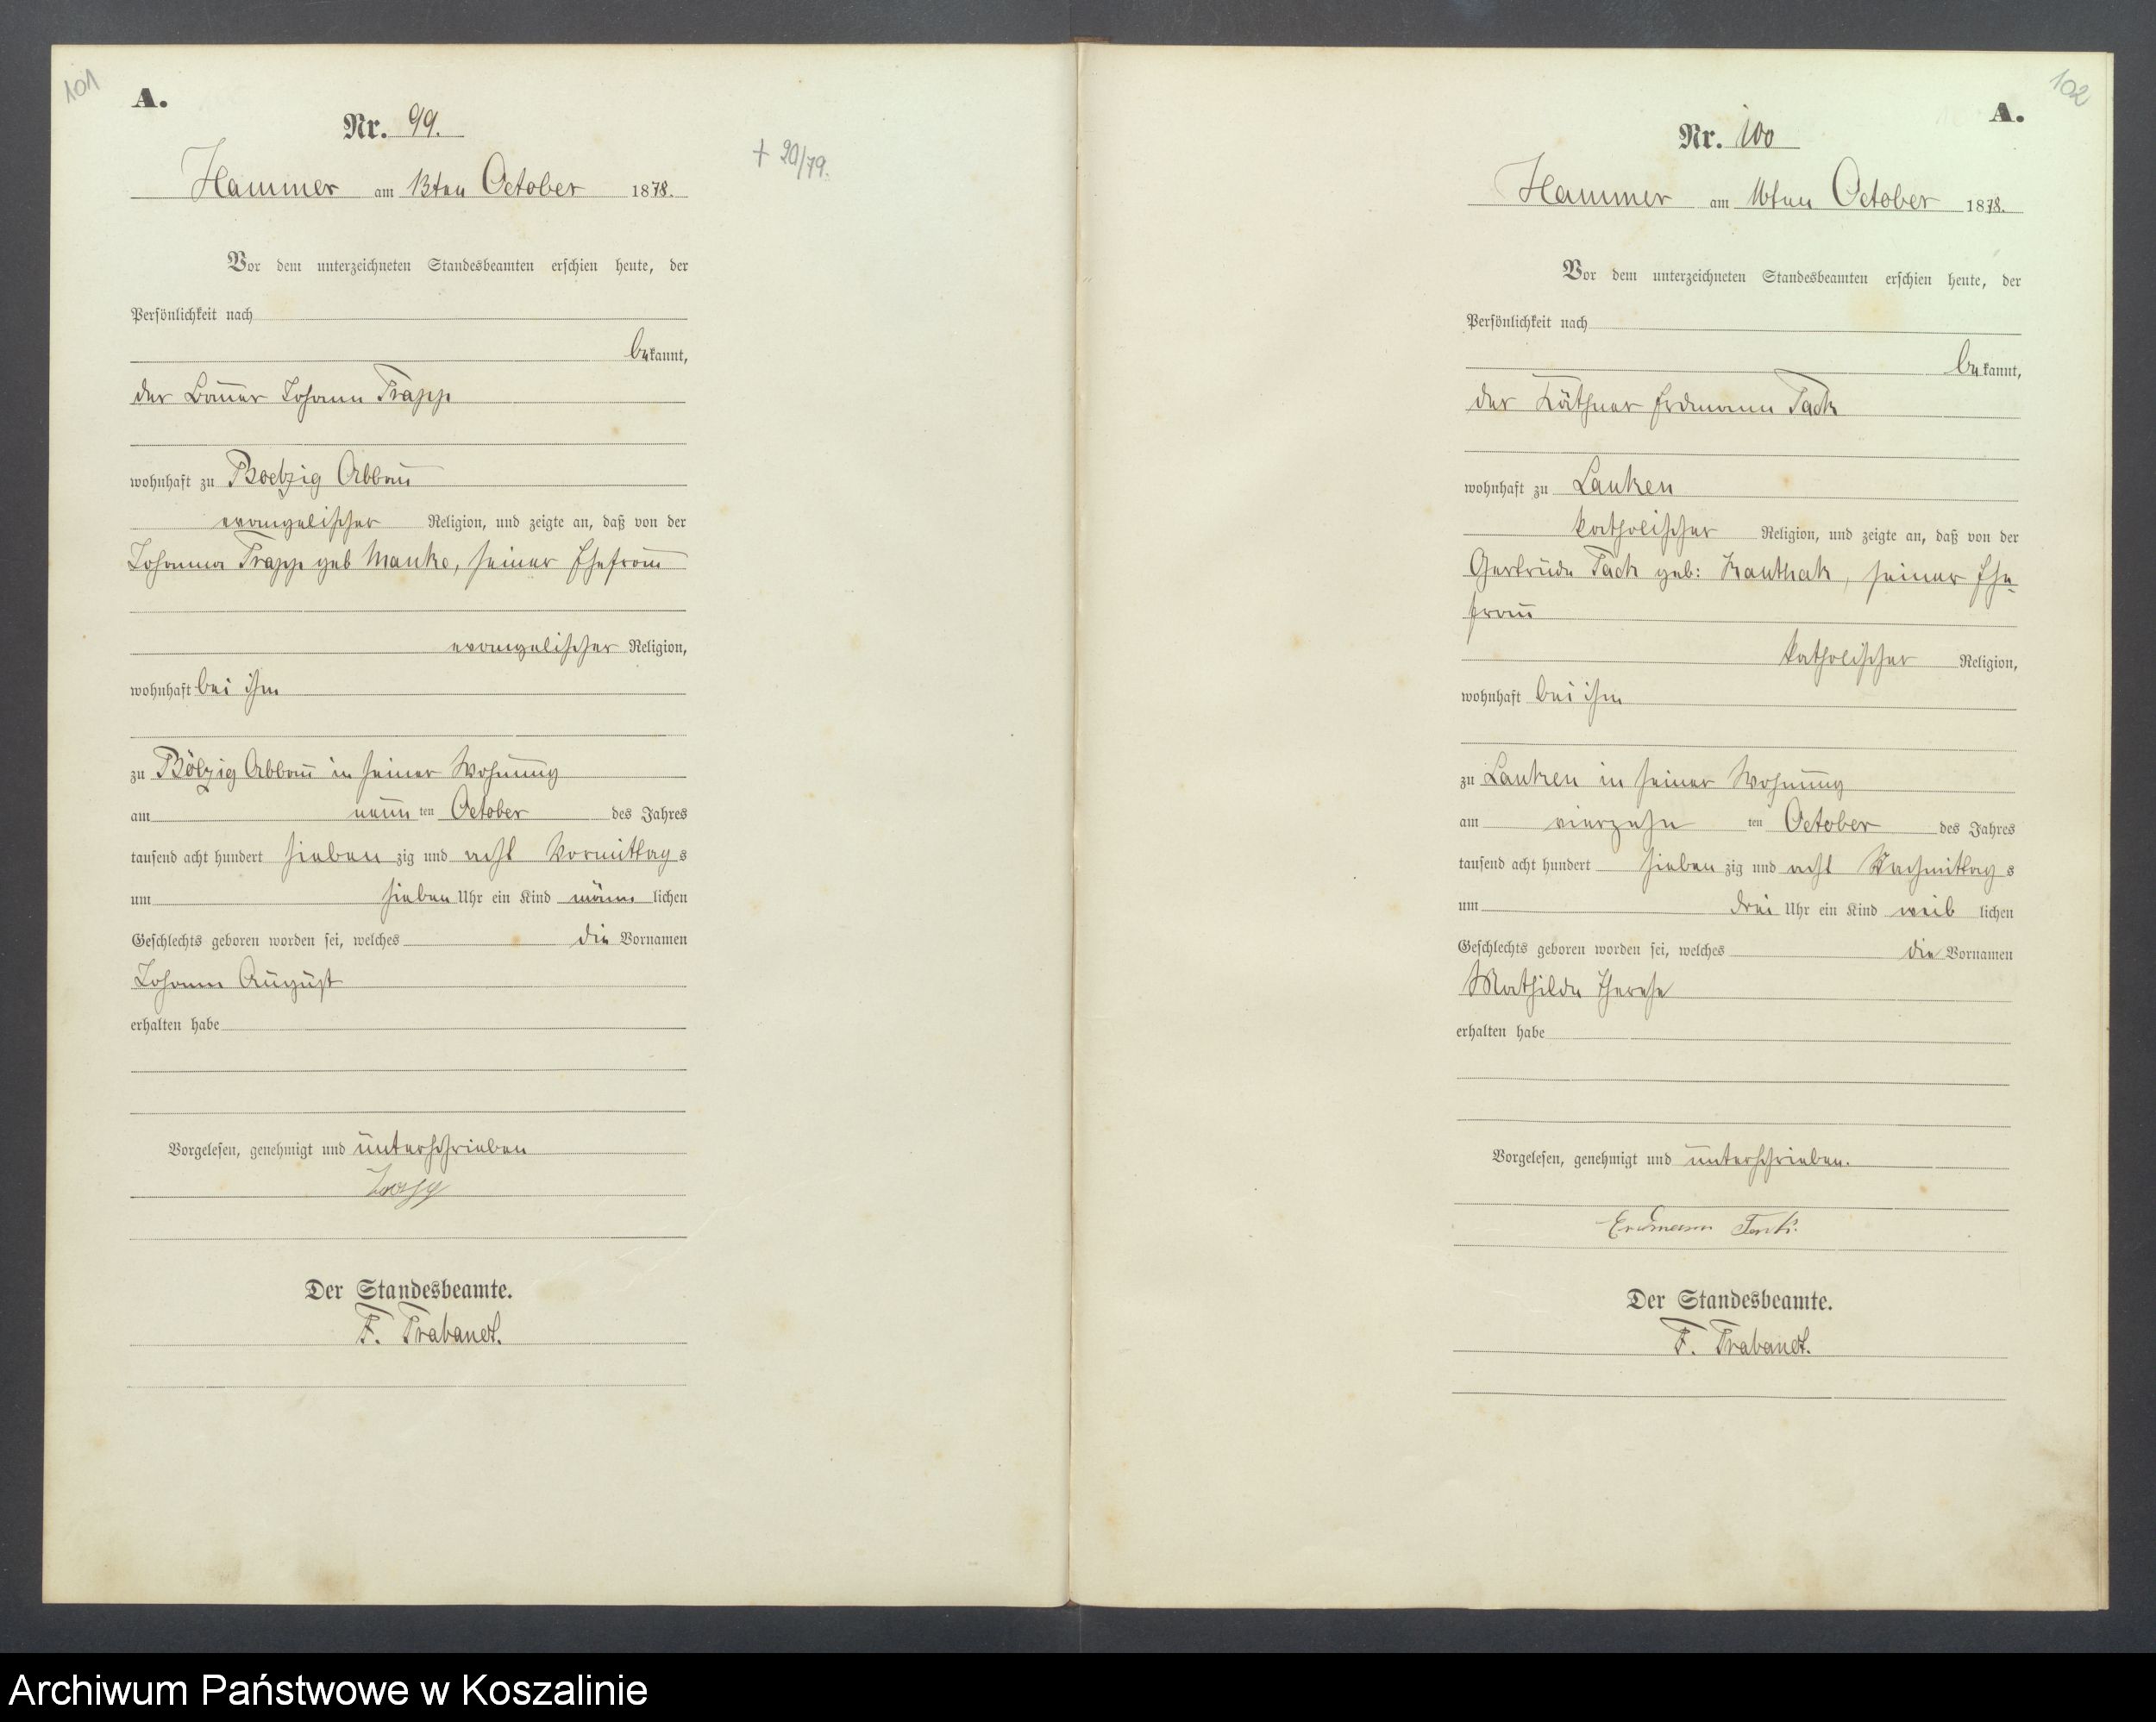 101
A.
Nr. 99.
+ 20/79.
Hammer am 13ten October 1878.
Vor dem unterzeichneten Standesbeamten erschien heute, der
Persönlichkeit nach
bekannt,
der Bauer Johann Trapp
wohnhaft zu Boelzig Abbau
evangelischer Religion, und zeigte an, daß von der
Johanna Trapp geb Manke, seiner Ehefrau
evangelischer Religion,
wohnhaft bei ihm
zu Bölzig Abbau in seiner Wohnung
am neun ten October des Jahres
tausend acht hundert sieben zig und acht Vormittag s
um sieben Uhr ein Kind männ lichen
Geschlechts geboren worden sei, welches die Vornamen
Johann August
erhalten habe
Vorgelesen, genehmigt und unterschrieben
Der Standesbeamte.
F. Trabandt.
102
A.
Nr. 100
Hammer am 16ten October 1878.
Vor dem unterzeichneten Standesbeamten erschien heute, der
Persönlichkeit nach
bekannt,
der Käthner Erdmann Tack
wohnhaft zu Lanken
katholischer Religion, und zeigte an, daß von der
Gertrude Tack geb: Kanthak, seiner Ehe-
frau
katholischer Religion,
wohnhaft bei ihm
zu Lanken in seiner Wohnung
am vierzehn ten October des Jahres
tausend acht hundert sieben zig und acht Nachmittag s
um drei Uhr ein Kind weib lichen
Geschlechts geboren worden sei, welches die Vornamen
Mathilde Therese
erhalten habe
Vorgelesen, genehmigt und unterschrieben.
Erdmann
Der Standesbeamte.
F. Trabandt.
Archiwum Państwowe w Koszalinie